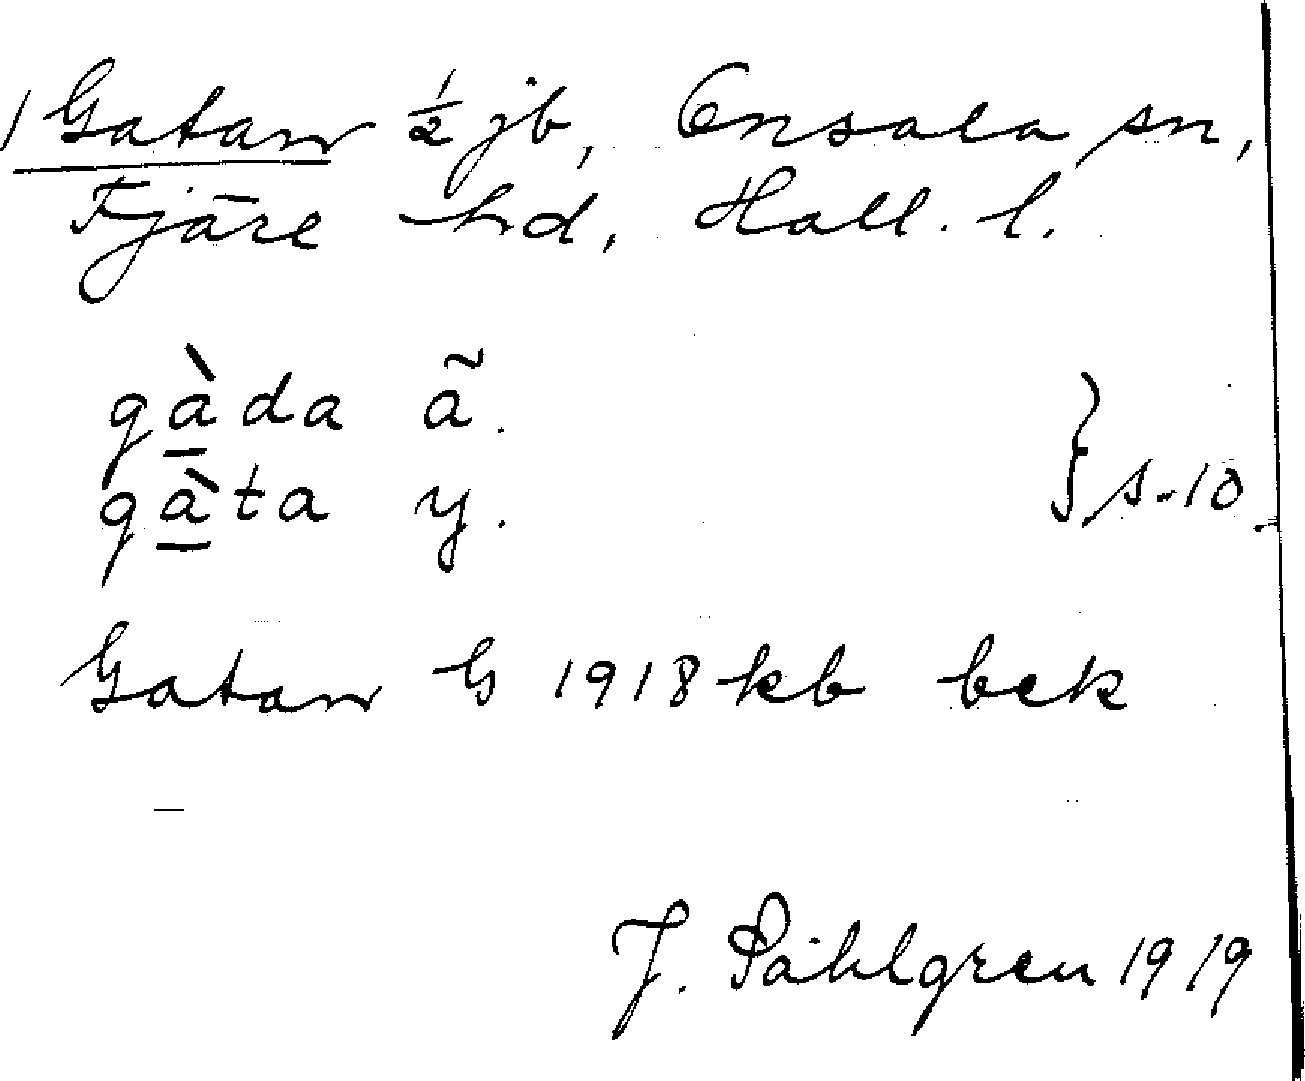 1 Gatan ½ jb, Onsala sn,
Fjäre hd, Hall. l.
gàda ã.
gàta y.
} s. 10
Gatan G 1918 kb bek
J. Påhlgren 1919